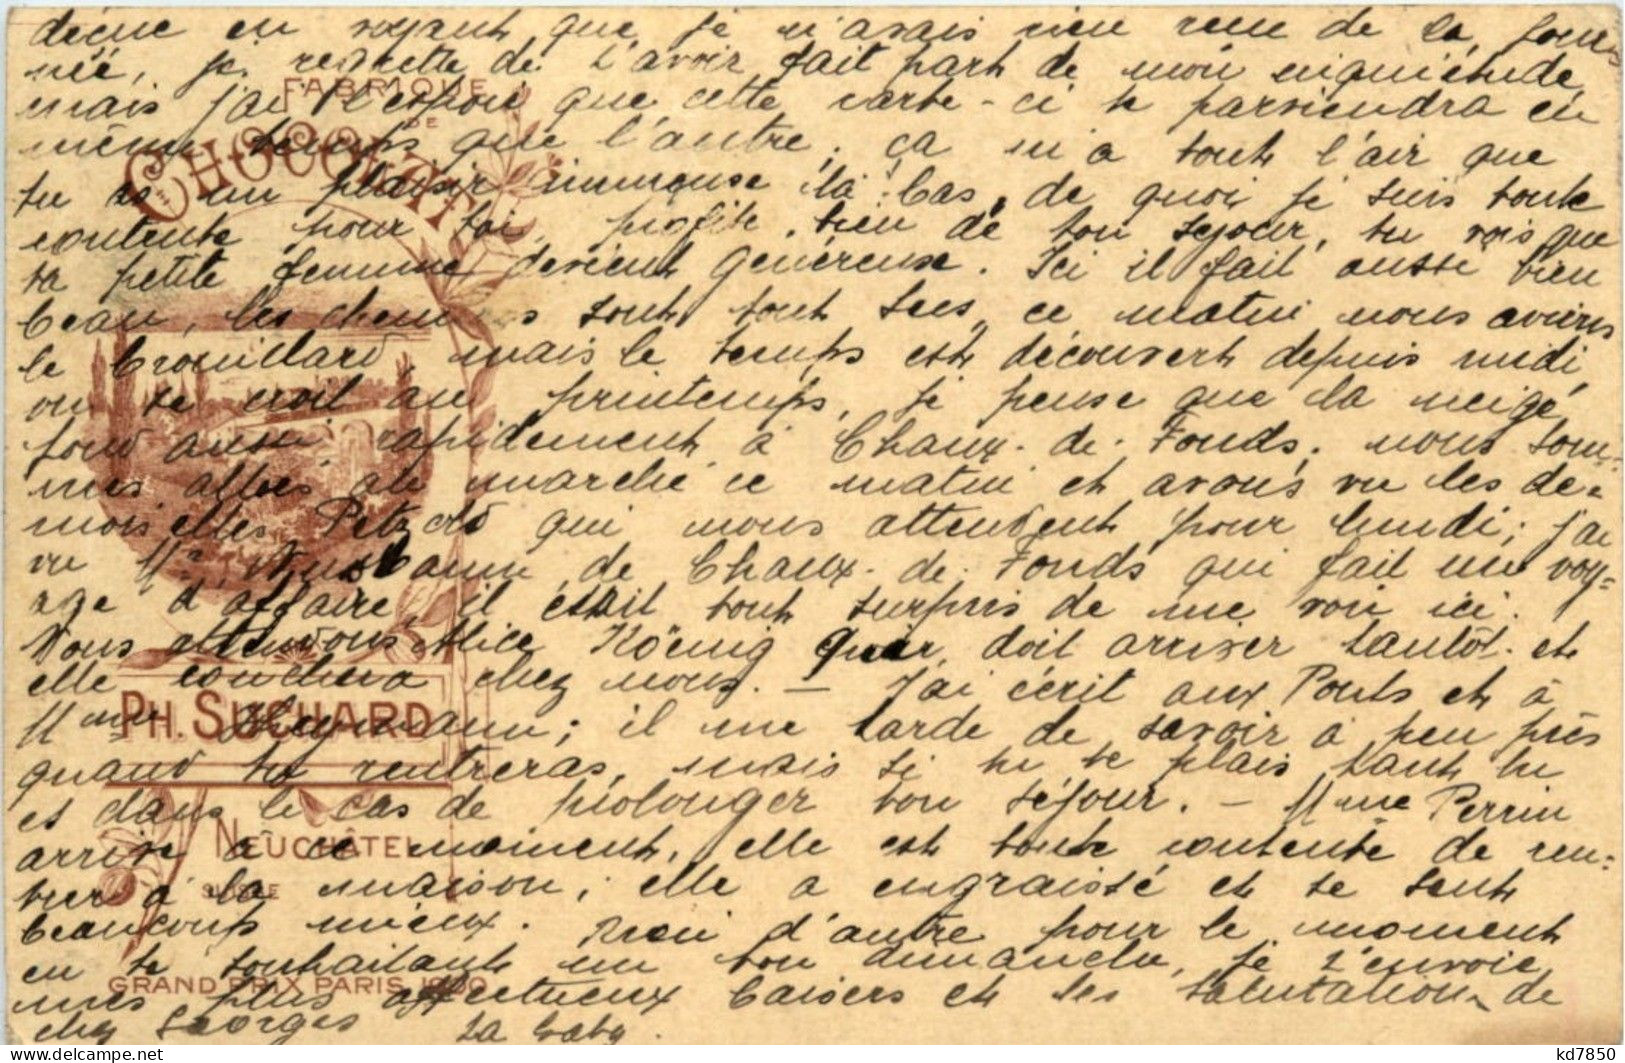 déçue en voyant que je n'avais rien reçu de la jour-
née, je regrette de t'avoir fait part de mon inquiétude
mais j'ai l'espoir que cette carte-ci te parviendra en
même temps que l'autre. ça m'a tout l'air que
tu as un plaisir immense là-bas, de quoi je suis toute
contente pour toi, profite bien de ton séjour, tu vois que
ta petite femme devient généreuse. Ici il fait aussi bien
beau, les chemins sont tout secs, ce matin nous avions
le brouillard, mais le temps est découvert depuis midi,
on se croit au printemps, je pense que la neige
fond aussi rapidement à Chaux-de-Fonds. nous som-
mes allées au marché ce matin et avons vu les de-
moiselles Petzold qui nous attendent pour lundi; j'ai
vu Mr Nussbaum de Chaux-de-Fonds qui fait un voy-
age d'affaire, il était tout surpris de me voir ici.
Nous attendons Alice Köenig qui doit arriver tantôt et
elle couchera chez nous. – J'ai écrit aux Ponts et à
Mme Heymann; il me tarde de savoir à peu près
quand tu rentreras, mais si tu te plais tant tu
es dans le cas de prolonger ton séjour. – Mme Perrin
arrive à ce moment, elle est toute contente de ren-
trer à la maison; elle a engraissé et se sent
beaucoup mieux. Rien d'autre pour le moment
en te souhaitant un bon dimanche, je t'envoie
mes plus affectueux baisers et les salutations de
chez Georges La Gaby.
FABRIQUE
DE
CHOCOLAT
PH. SUCHARD
NEUCHÂTEL
SUISSE
GRAND PRIX PARIS 1900
kd7850